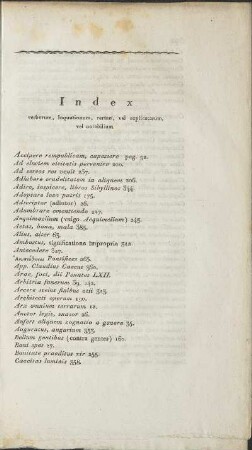 Index
verborum, loquutionum, rerum, vel explicatarum,
vel notabilium
Accipere rempublicam, capessere pag. 92.
Ad aluctem aetatis pervenire 200.
Ad aures res venit 267.
Adhibere crudelitatem in aliquem 206.
Adire, inspicere, libros Sibyllinos 344.
Adoptare loco patris 175.
Adscriptor (adiutor) 26.
Adumbrare ementiendo 217.
Aequimaelium (vulgo Aequimelium) 245.
Aetas, bona, mala 385.
Alius, alter 63.
Ambustus, significatione impropria 342
Antecedere 827.
Pontifices 265.
App. Claudius Caecus 260.
Arae, foci, dii Penates LXII.
Arbitria funerum 89, 142.
Arcere stolas fluctus asti 313.
Architecti operum 150.
Ars omnium terrarum 10.
Auctor legis, suasor 26.
Aufert aliquem cognatio a genere 34.
Auguratus, augurium 333.
Bellum gentibus (contra gentes) 160.
Boni spes 17.
Bonitate praeditus vir 255.
Caecitas luminis 358.